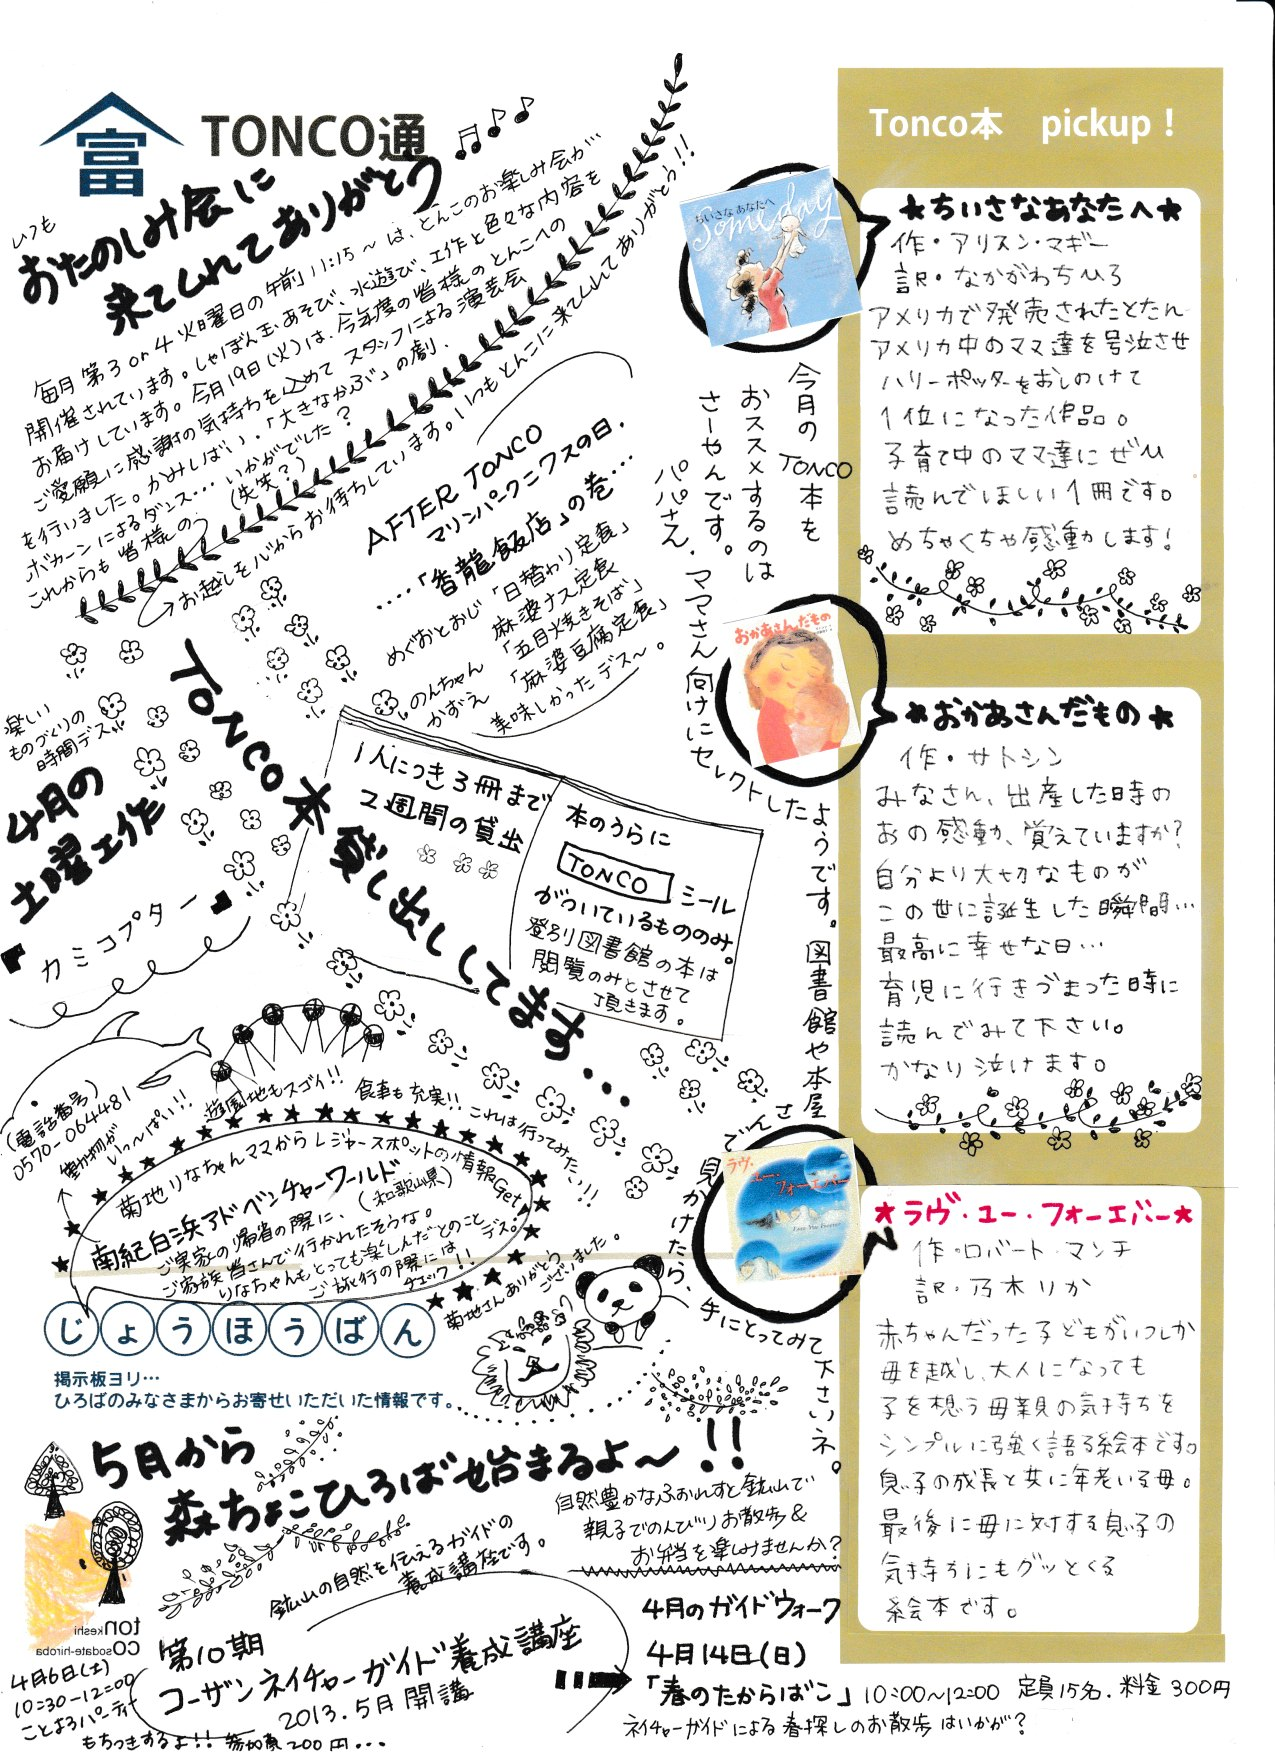 富
TONCO通
いつも
おたのしみ会に
来てくれてありがとう
毎月第3or4火曜日の午前11:15～は、とんこのお楽しみ会が
開催されています。しゃぼん玉あそび、水遊び、工作と色々な内容を
お届けしています。今月19日(火)は、今年度の皆様のとんこへの
ご愛願に感謝の気持ちを込めてスタッフによる演芸会
を行いました。かみしばい、「大きなかぶ」の劇、
ボカーンによるダンス…いかがでした？
これからも皆様の (失笑？)
お越しを心からお待ちしています。いつもとんこに来てくれてありがとう!!
AFTER TONCO
マリンパークニフスの日、
….「香龍飯店」の巻…
めぐおとおじ「日替わり定食」
麻婆ナス定食
のんちゃん「五目焼きそば」
かずえ「麻婆豆腐定食」
美味しかったデス～。
TONCO本 貸し出ししてます…
1人につき3冊まで
2週間の貸出
本のうらに
TONCO シール
がついているもののみ。
登別図書館の本は
閲覧のみとさせて
頂きます。
楽しい
ものづくりの
時間デス
4月の
土曜工作
カミコプター
今月のTONCO本を
おススメするのは
さーやんです。
パパさん、ママさん向けにセレクトしたようです。図書館や本屋さんで見かけたら、手にとってみて下さいネ。
Tonco本 pickup！
ちいさな あなたへ
Someday
★ちいさなあなたへ★
作・アリスン・マギー
訳・なかがわちひろ
アメリカで発売されたとたん
アメリカ中のママ達を号泣させ
ハリーポッターをおしのけて
1位になった作品。
子育て中のママ達にぜひ
読んでほしい1冊です。
めちゃくちゃ感動します!
おかあさんだもの
★おかあさんだもの★
作・サトシン
みなさん、出産した時の
あの感動、覚えていますか？
自分より大切なものが
この世に誕生した瞬間…
最高に幸せな日…
育児に行きづまった時に
読んでみて下さい。
かなり泣けます。
ラヴ・ユー・フォーエバー
★ラヴ・ユー・フォーエバー★
作・ロバート・マンチ
訳・乃木りか
赤ちゃんだった子どもがいつしか
母を越し、大人になっても
子を想う母親の気持ちを
シンプルに強く語る絵本です。
息子の成長と共に年老いる母。
最後に母に対する息子の
気持ちにもグッとくる
絵本です。
(電話番号)
0570-064481
動物が
いっ～ぱい!!
遊園地もスゴイ!!
食事も充実!!
これは行ってみたい!!
菊地りなちゃんママからレジャースポットの情報Get!
南紀白浜アドベンチャーワールド
(和歌山県)
ご実家への帰省の際に、
ご家族皆さんで行かれたそうな。
りなちゃんもとっても楽しんだとのことデス。
ご旅行の際には
チェック!!
菊地さんありがとう
ございました。
じょうほうばん
掲示板ヨリ…
ひろばのみなさまからお寄せいただいた情報です。
5月から
森ちょこひろば始まるよ～!!
自然豊かなふぉれすと鉱山で
親子でのんびりお散歩＆
お弁当を楽しみませんか？
鉱山の自然を伝えるガイドの
養成講座です。
第10期
コーザンネイチャーガイド養成講座
2013.5月開講
4月のガイドウォーク
4月14日(日)
「春のたからばこ」10:00～12:00 定員15名、料金300円
ネイチャーガイドによる春探しのお散歩はいかが？
tonkeshi
cosodate-hiroba
4月6日(土)
10:30-12:00
ことよろパーティー
もちつきするよ!! 参加費200円…